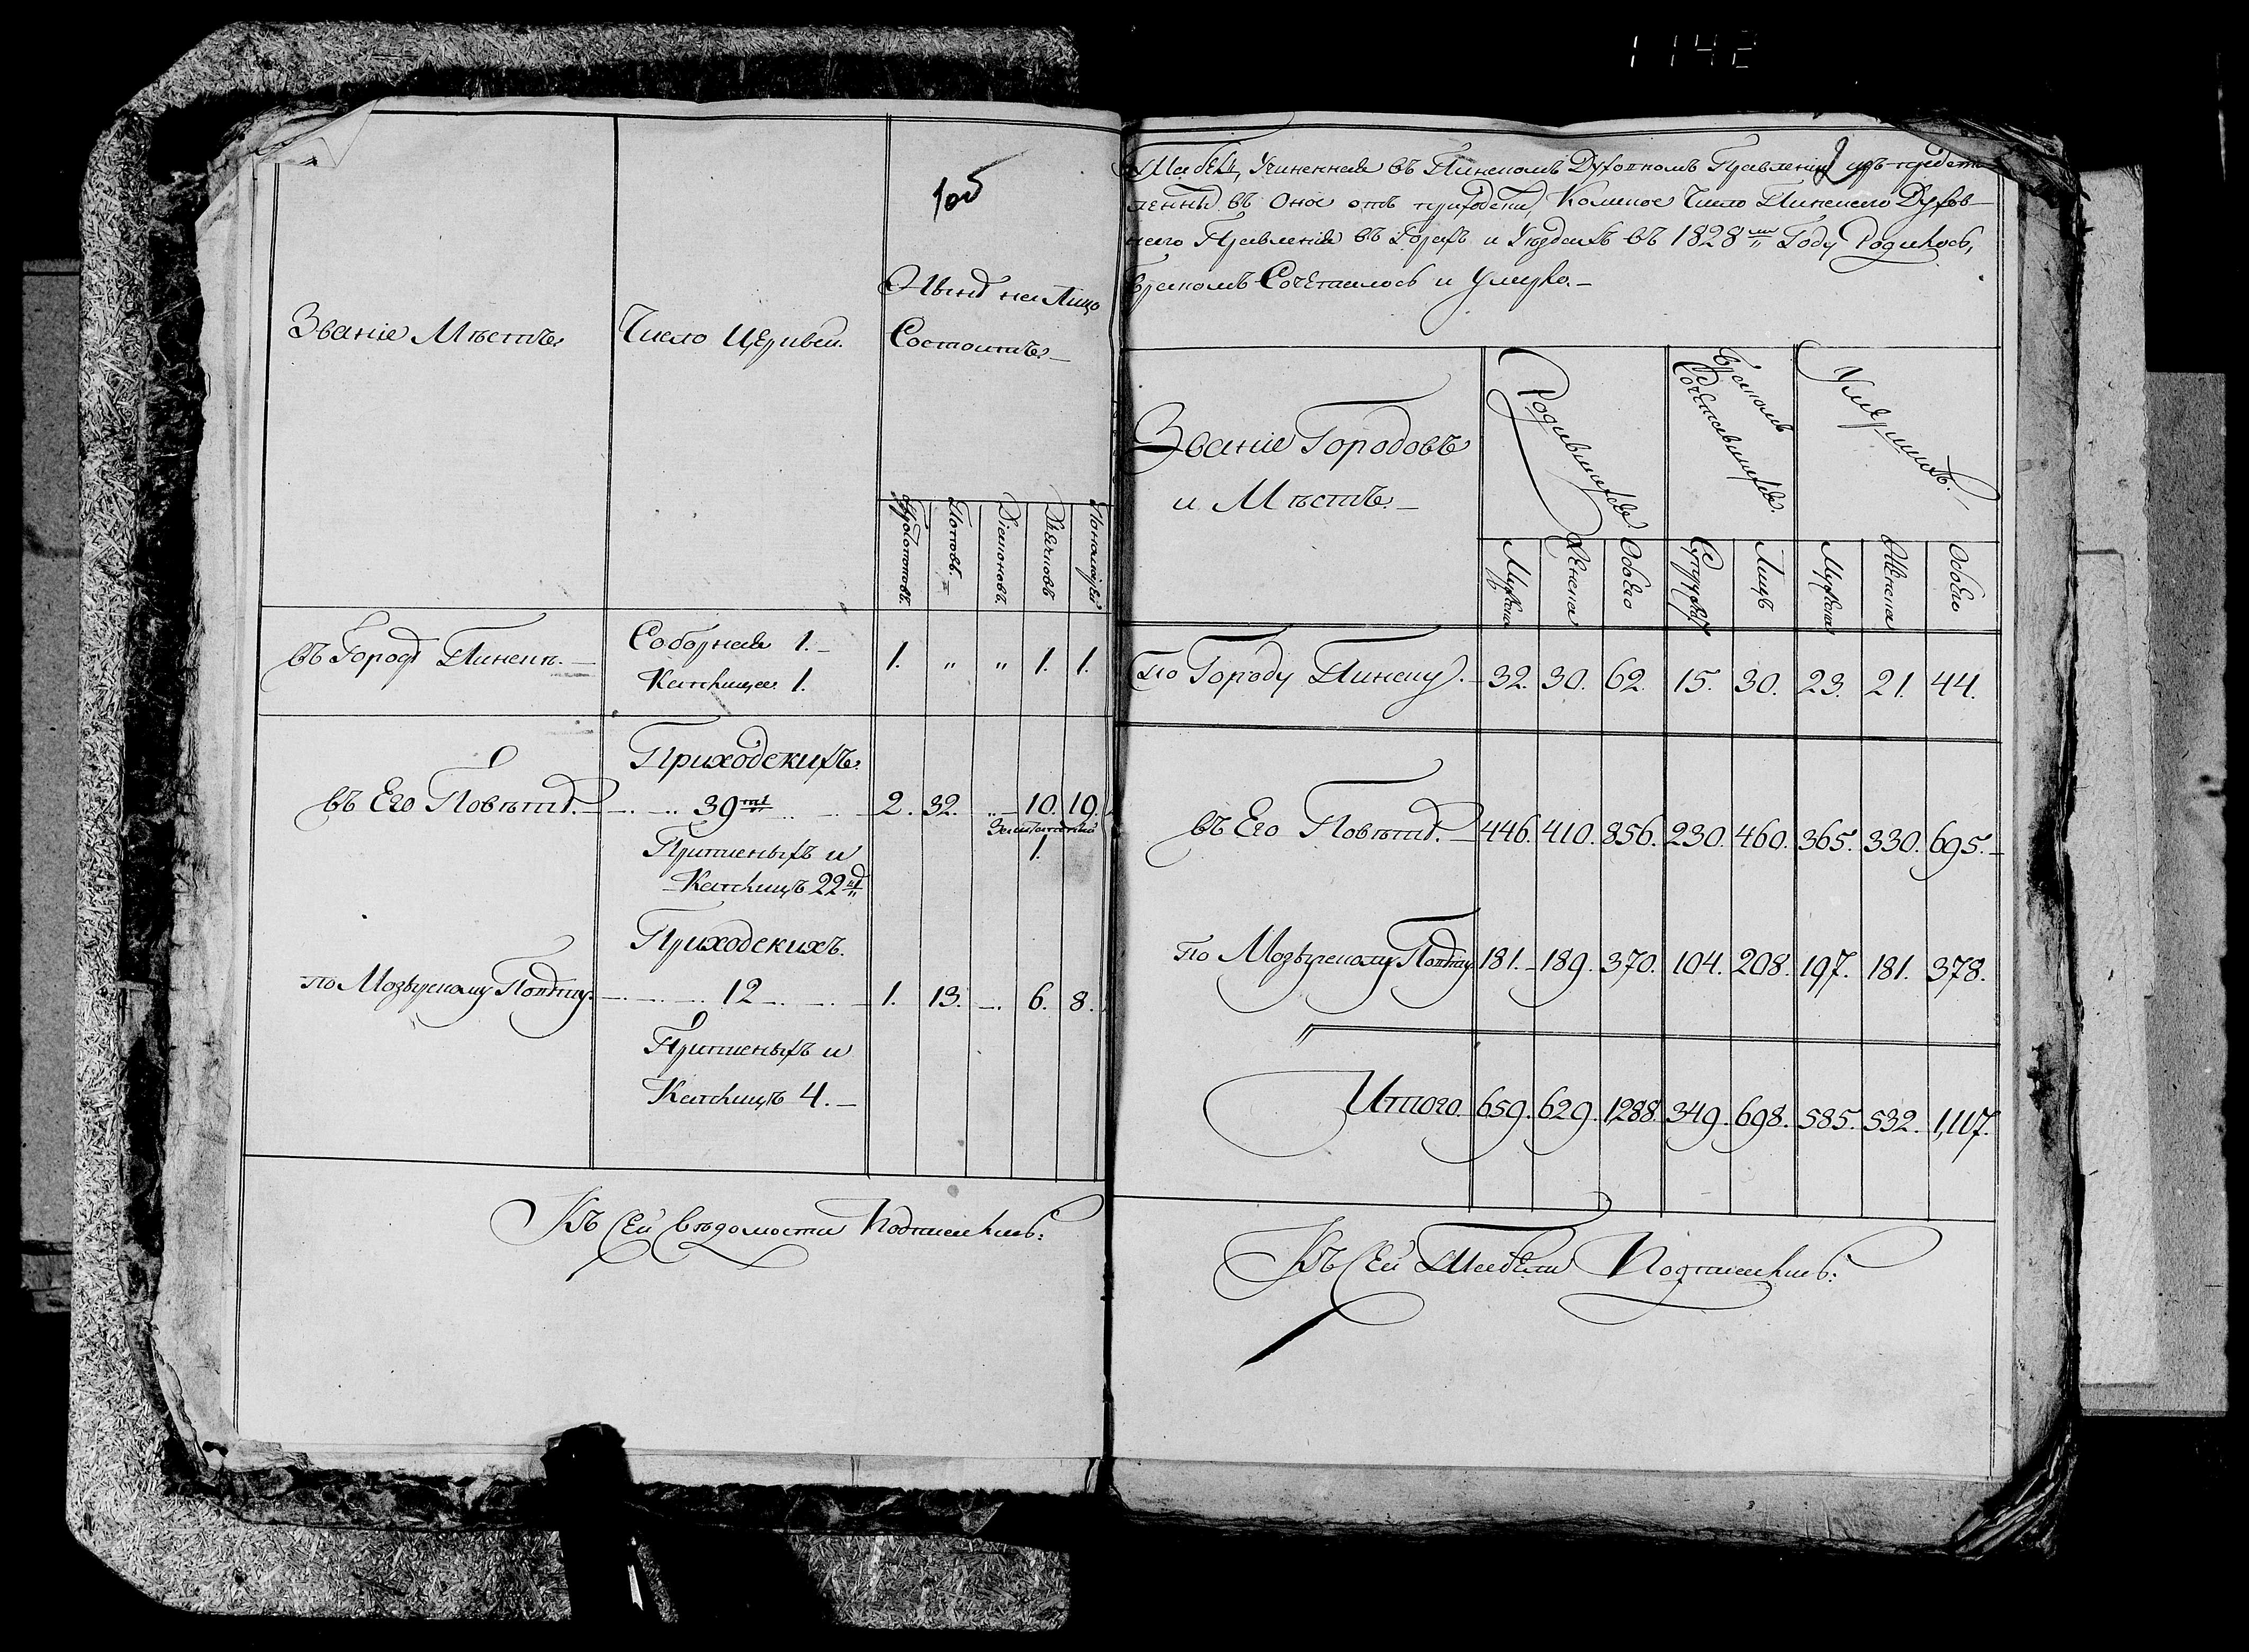 1142
1об
Званіе Мѣстъ.
Число Церквей.
Нынѣ на Лицо
Состоитъ.
Протопоповъ.
Поповъ.
Діаконовъ.
Дьячковъ
Пономарей
въ Городѣ Пинскѣ. Соборная 1. 1. „ „ 1. 1.
Каплица 1.
Приходскихъ.
въ Его Повѣтѣ. 39ть 2. 32. 10. 19.
Приписныхъ и 1.
Каплицъ 22ѣ
Приходскихъ.
по Мозырскому Повѣту. 12 1. 13. 6. 8.
Приписныхъ и
Каплицъ 4.
Къ Сей Вѣдомости Подписались:
2
Табель, Учиненная въ Пинскомъ Духовномъ Правленіи изъ предста
вленны въ Оное отъ приходовъ, Коликое Число Пинскаго Духов-
наго Правленія въ Город. и Уѣздахъ въ 1828мъ Году Родилось,
Бракомъ Сочеталось и Умерло.
Званіе Городовъ
и Мѣстъ.
Родившихся
Бракомъ
Сочетавшихся.
Умершихъ.
Мужска
Женска
Обоего
Супружес.
Лицъ
Мужска
Женска
Обоего
По Городу Пинску. 32. 30. 62. 15. 30. 23. 21. 44.
въ Его Повѣтѣ. 446. 410. 856. 230. 460. 365. 330. 695.
по Мозырскому Повѣту 181. 189. 370. 104. 208. 197. 181. 378.
Итого. 659. 629. 1288. 349. 698. 585. 532. 1,117.
Къ Сей Табели Подписались: